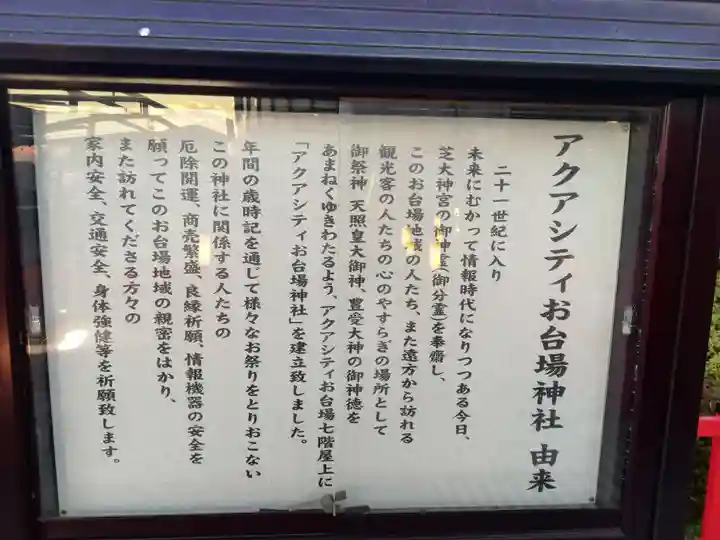 アクアシティお台場神社 由来
二十一世紀に入り
未来にむかって情報時代になりつつある今日、
芝大神宮の御神霊(御分霊)を奉齋し、
このお台場地域の人たち、また遠方から訪れる
観光客の人たちの心のやすらぎの場所として
御祭神 天照皇大御神、豊受大神の御神徳を
あまねくゆきわたるよう、アクアシティお台場七階屋上に
「アクアシティお台場神社」を建立致しました。
年間の歳時記を通じて様々なお祭りをとりおこない
この神社に関係する人たちの
厄除開運、商売繁盛、良縁祈願、情報機器の安全を
願ってこのお台場地域の親密をはかり、
また訪れてくださる方々の
家内安全、交通安全、身体強健等を祈願致します。